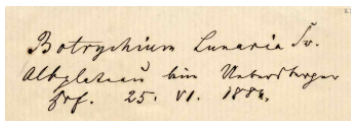 Botrychium Lunaria Sw.
Albplateau beim Uebersberger
Hof. 25. VI. 1882.